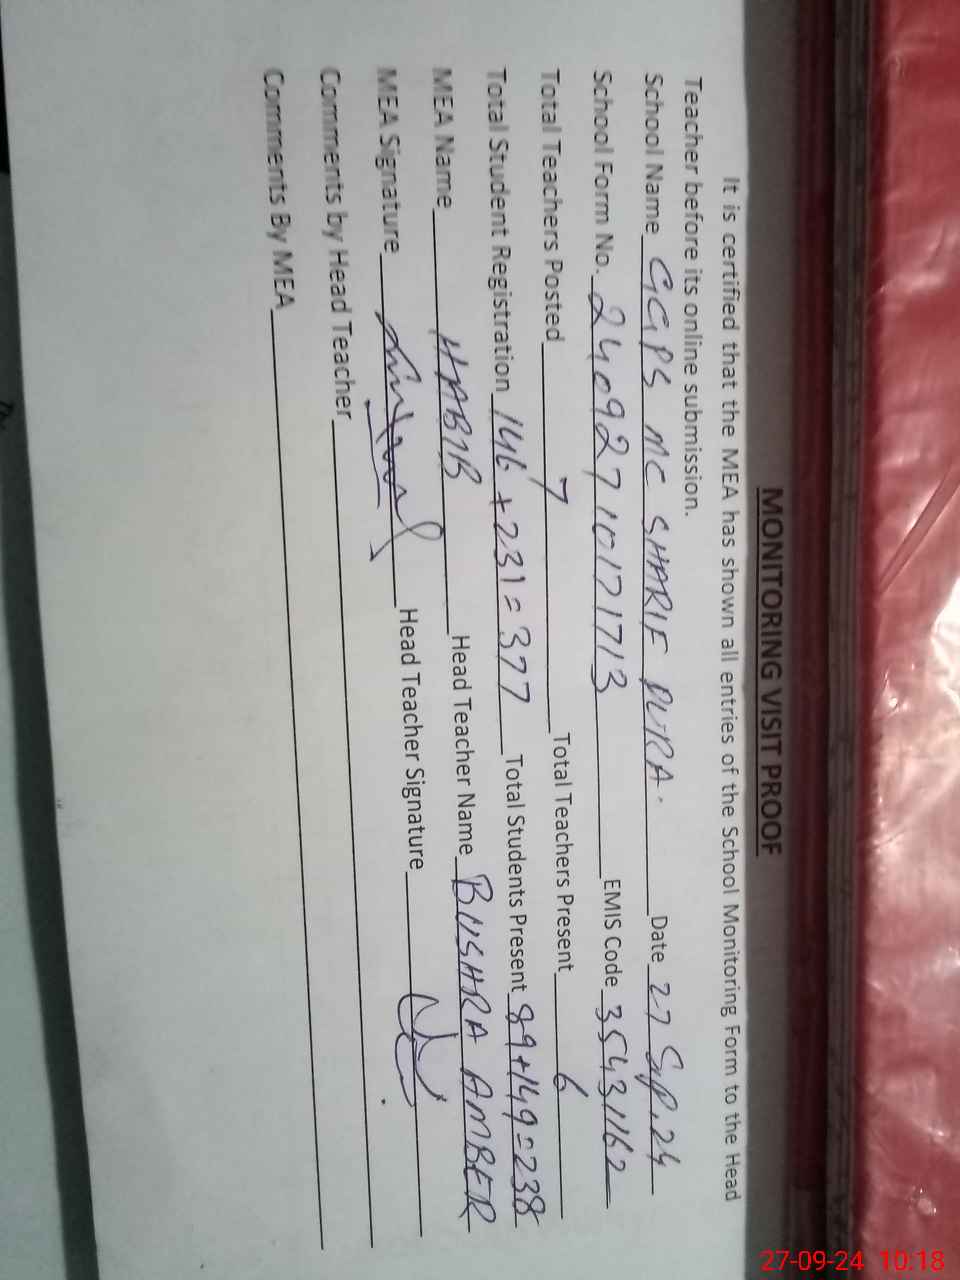 MONITORING VISIT PROOF
It is certified that the MEA has shown all entries of the School Monitoring Form to the Head
Teacher before its online submission.
School Name GGPS MC SHARIF PURA. Date 27 Sep, 24
School Form No. 24092710171713 EMIS Code 35431162
Total Teachers Posted 7 Total Teachers Present 6
Total Student Registration 146 + 231 = 377 Total Students Present 89+149=238
MEA Name HABIB Head Teacher Name BUSHRA AMBER
MEA Signature Head Teacher Signature
Comments by Head Teacher
Comments By MEA
27-09-24 10:18